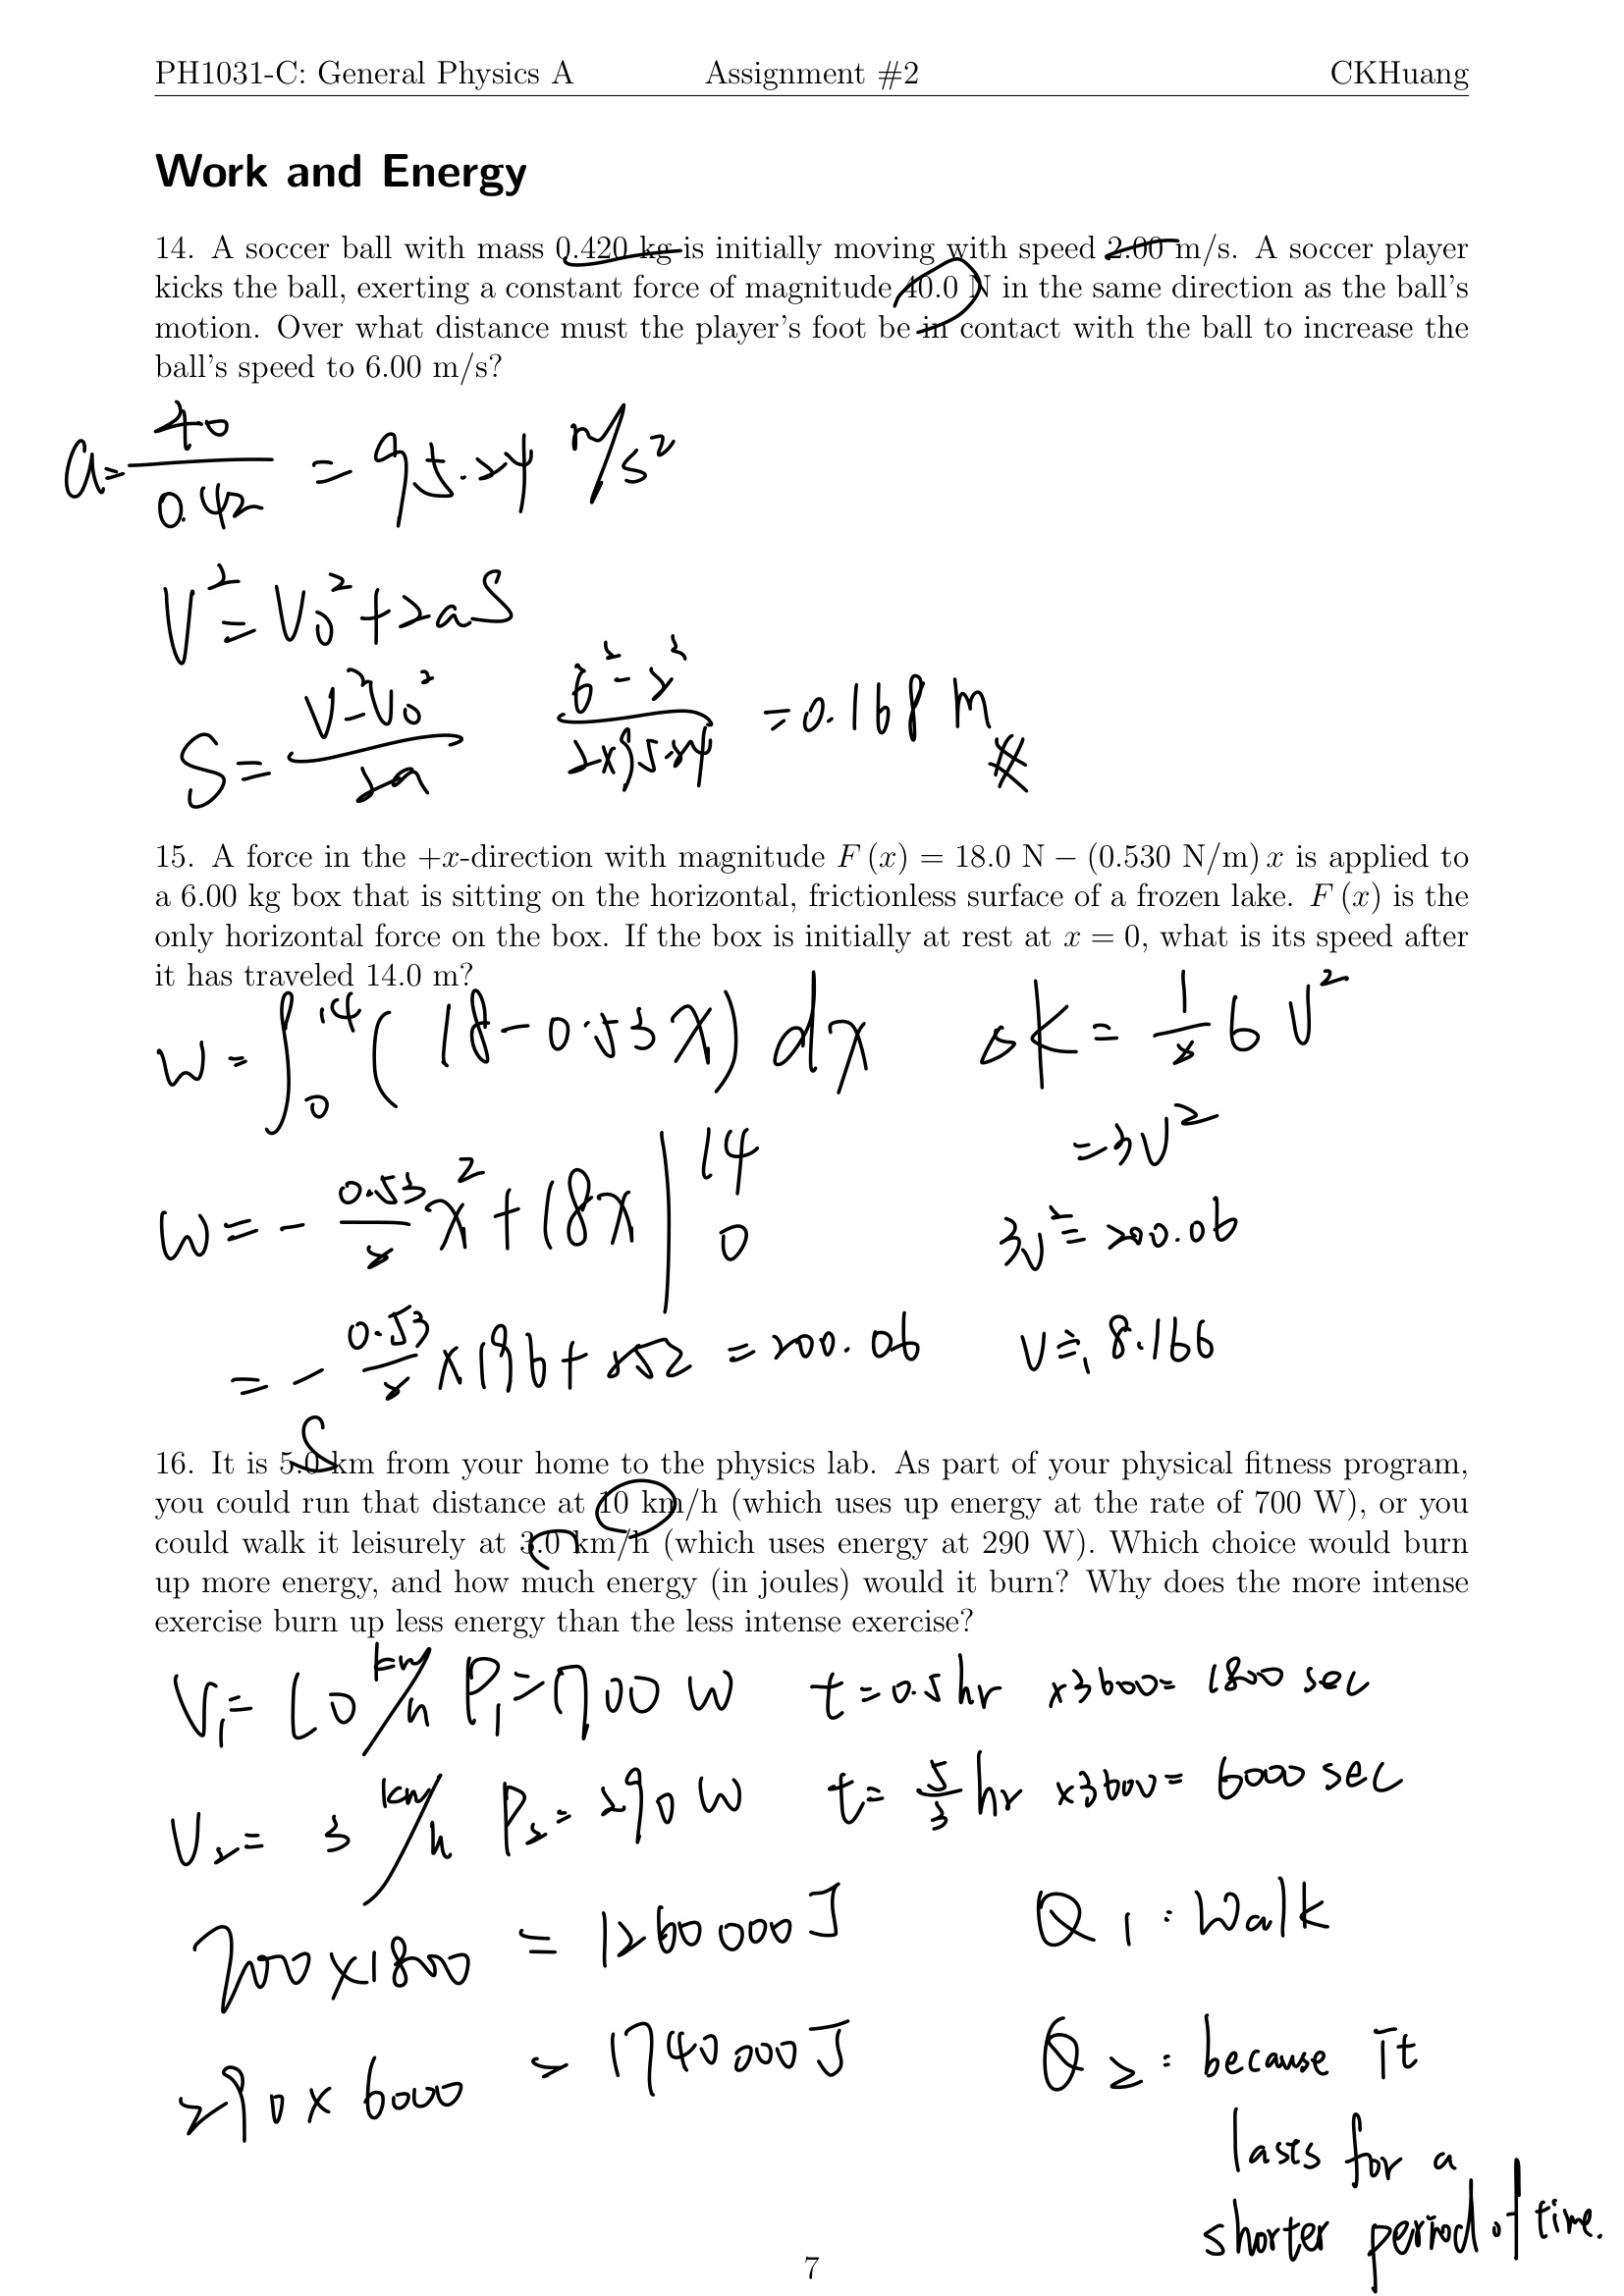 PH1031-C: General Physics A Assignment #2 CKHuang
Work and Energy
14. A soccer ball with mass 0.420 kg is initially moving with speed 2.00 m/s. A soccer player
kicks the ball, exerting a constant force of magnitude 40.0 N in the same direction as the ball's
motion. Over what distance must the player's foot be in contact with the ball to increase the
ball's speed to 6.00 m/s?
a = 40/0.42 = 95.24 m/s²
V² = V₀² + 2aS
S = V² - V₀²/2a 6² - 2²/2×95.24 = 0.168 m #
15. A force in the +x-direction with magnitude F (x) = 18.0 N − (0.530 N/m) x is applied to
a 6.00 kg box that is sitting on the horizontal, frictionless surface of a frozen lake. F (x) is the
only horizontal force on the box. If the box is initially at rest at x = 0, what is its speed after
it has traveled 14.0 m?
W = ∫₀¹⁴ ( 18 - 0.53x) dx ΔK = 1/2 6 V²
= 3V²
W = - 0.53/2 x² + 18x |₀¹⁴
3V² = 200.06
= - 0.53/2 × 196 + 252 = 200.06 V ≒ 8.166
S
16. It is 5.0 km from your home to the physics lab. As part of your physical fitness program,
you could run that distance at 10 km/h (which uses up energy at the rate of 700 W), or you
could walk it leisurely at 3.0 km/h (which uses energy at 290 W). Which choice would burn
up more energy, and how much energy (in joules) would it burn? Why does the more intense
exercise burn up less energy than the less intense exercise?
V₁ = 10 km/h P₁ = 700 W t = 0.5 hr ×3600 = 1800 sec
V₂ = 3 km/h P₂ = 290 W t = 5/3 hr ×3600 = 6000 sec
700×1800 = 1260000 J Q1 : Walk
290 × 6000 = 1740000 J Q2 : because it
lasts for a
shorter period of time.
7